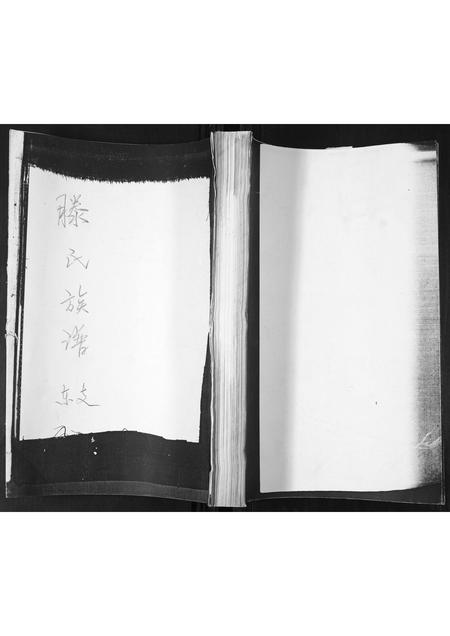 滕氏族谱
东支